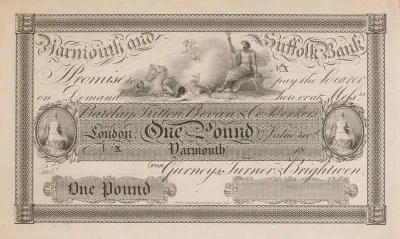 Yarmouth and Suffolk Bank
Promise to pay the Bearer
on Demand here or at Mess.rs
Barclay, Tritton, Bevan & Co. Bankers
London One Pound Value rec.d
Yarmouth 18
For Gurneys, Turner & Brightwen
One Pound